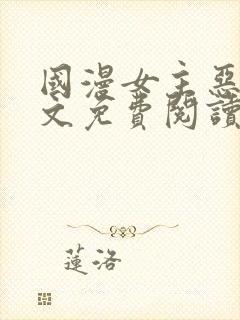 國漫女主惡
文免費閱讀
蓮洛